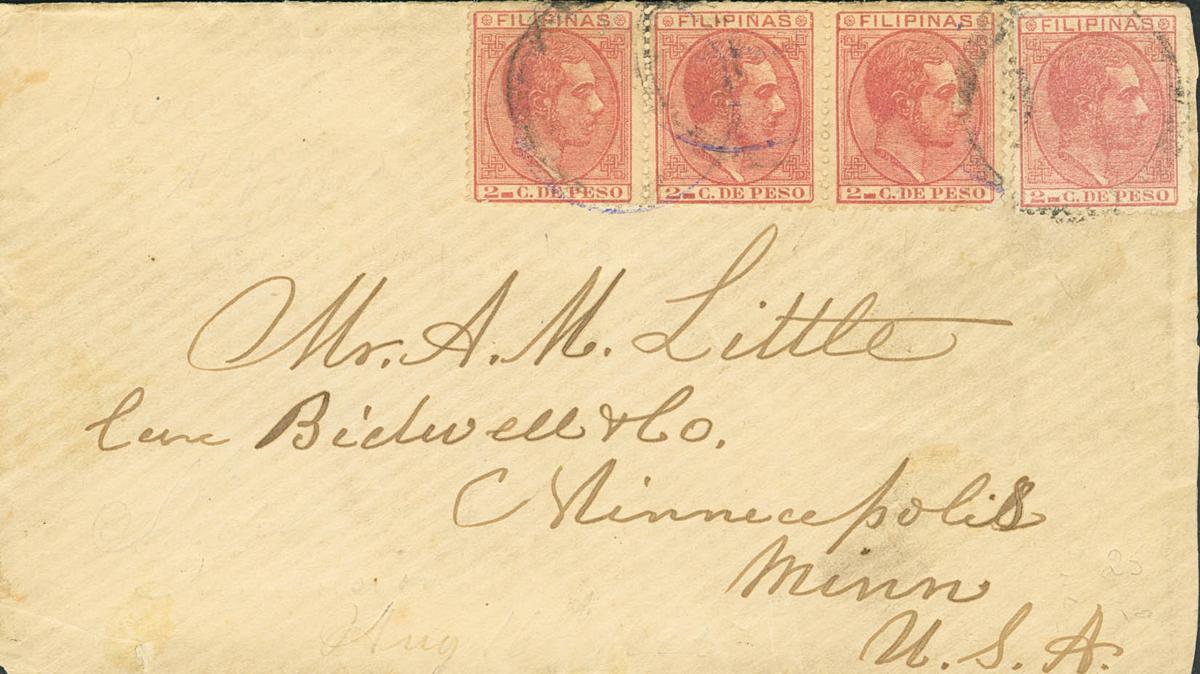 FILIPINAS FILIPINAS FILIPINAS FILIPINAS
2 C. DE PESO 2 C. DE PESO 2 C. DE PESO 2 C. DE PESO
Mr. A. M. Little
Care Bidwell & Co.
Minneapolis
Minn
U. S. A.
25
Aug